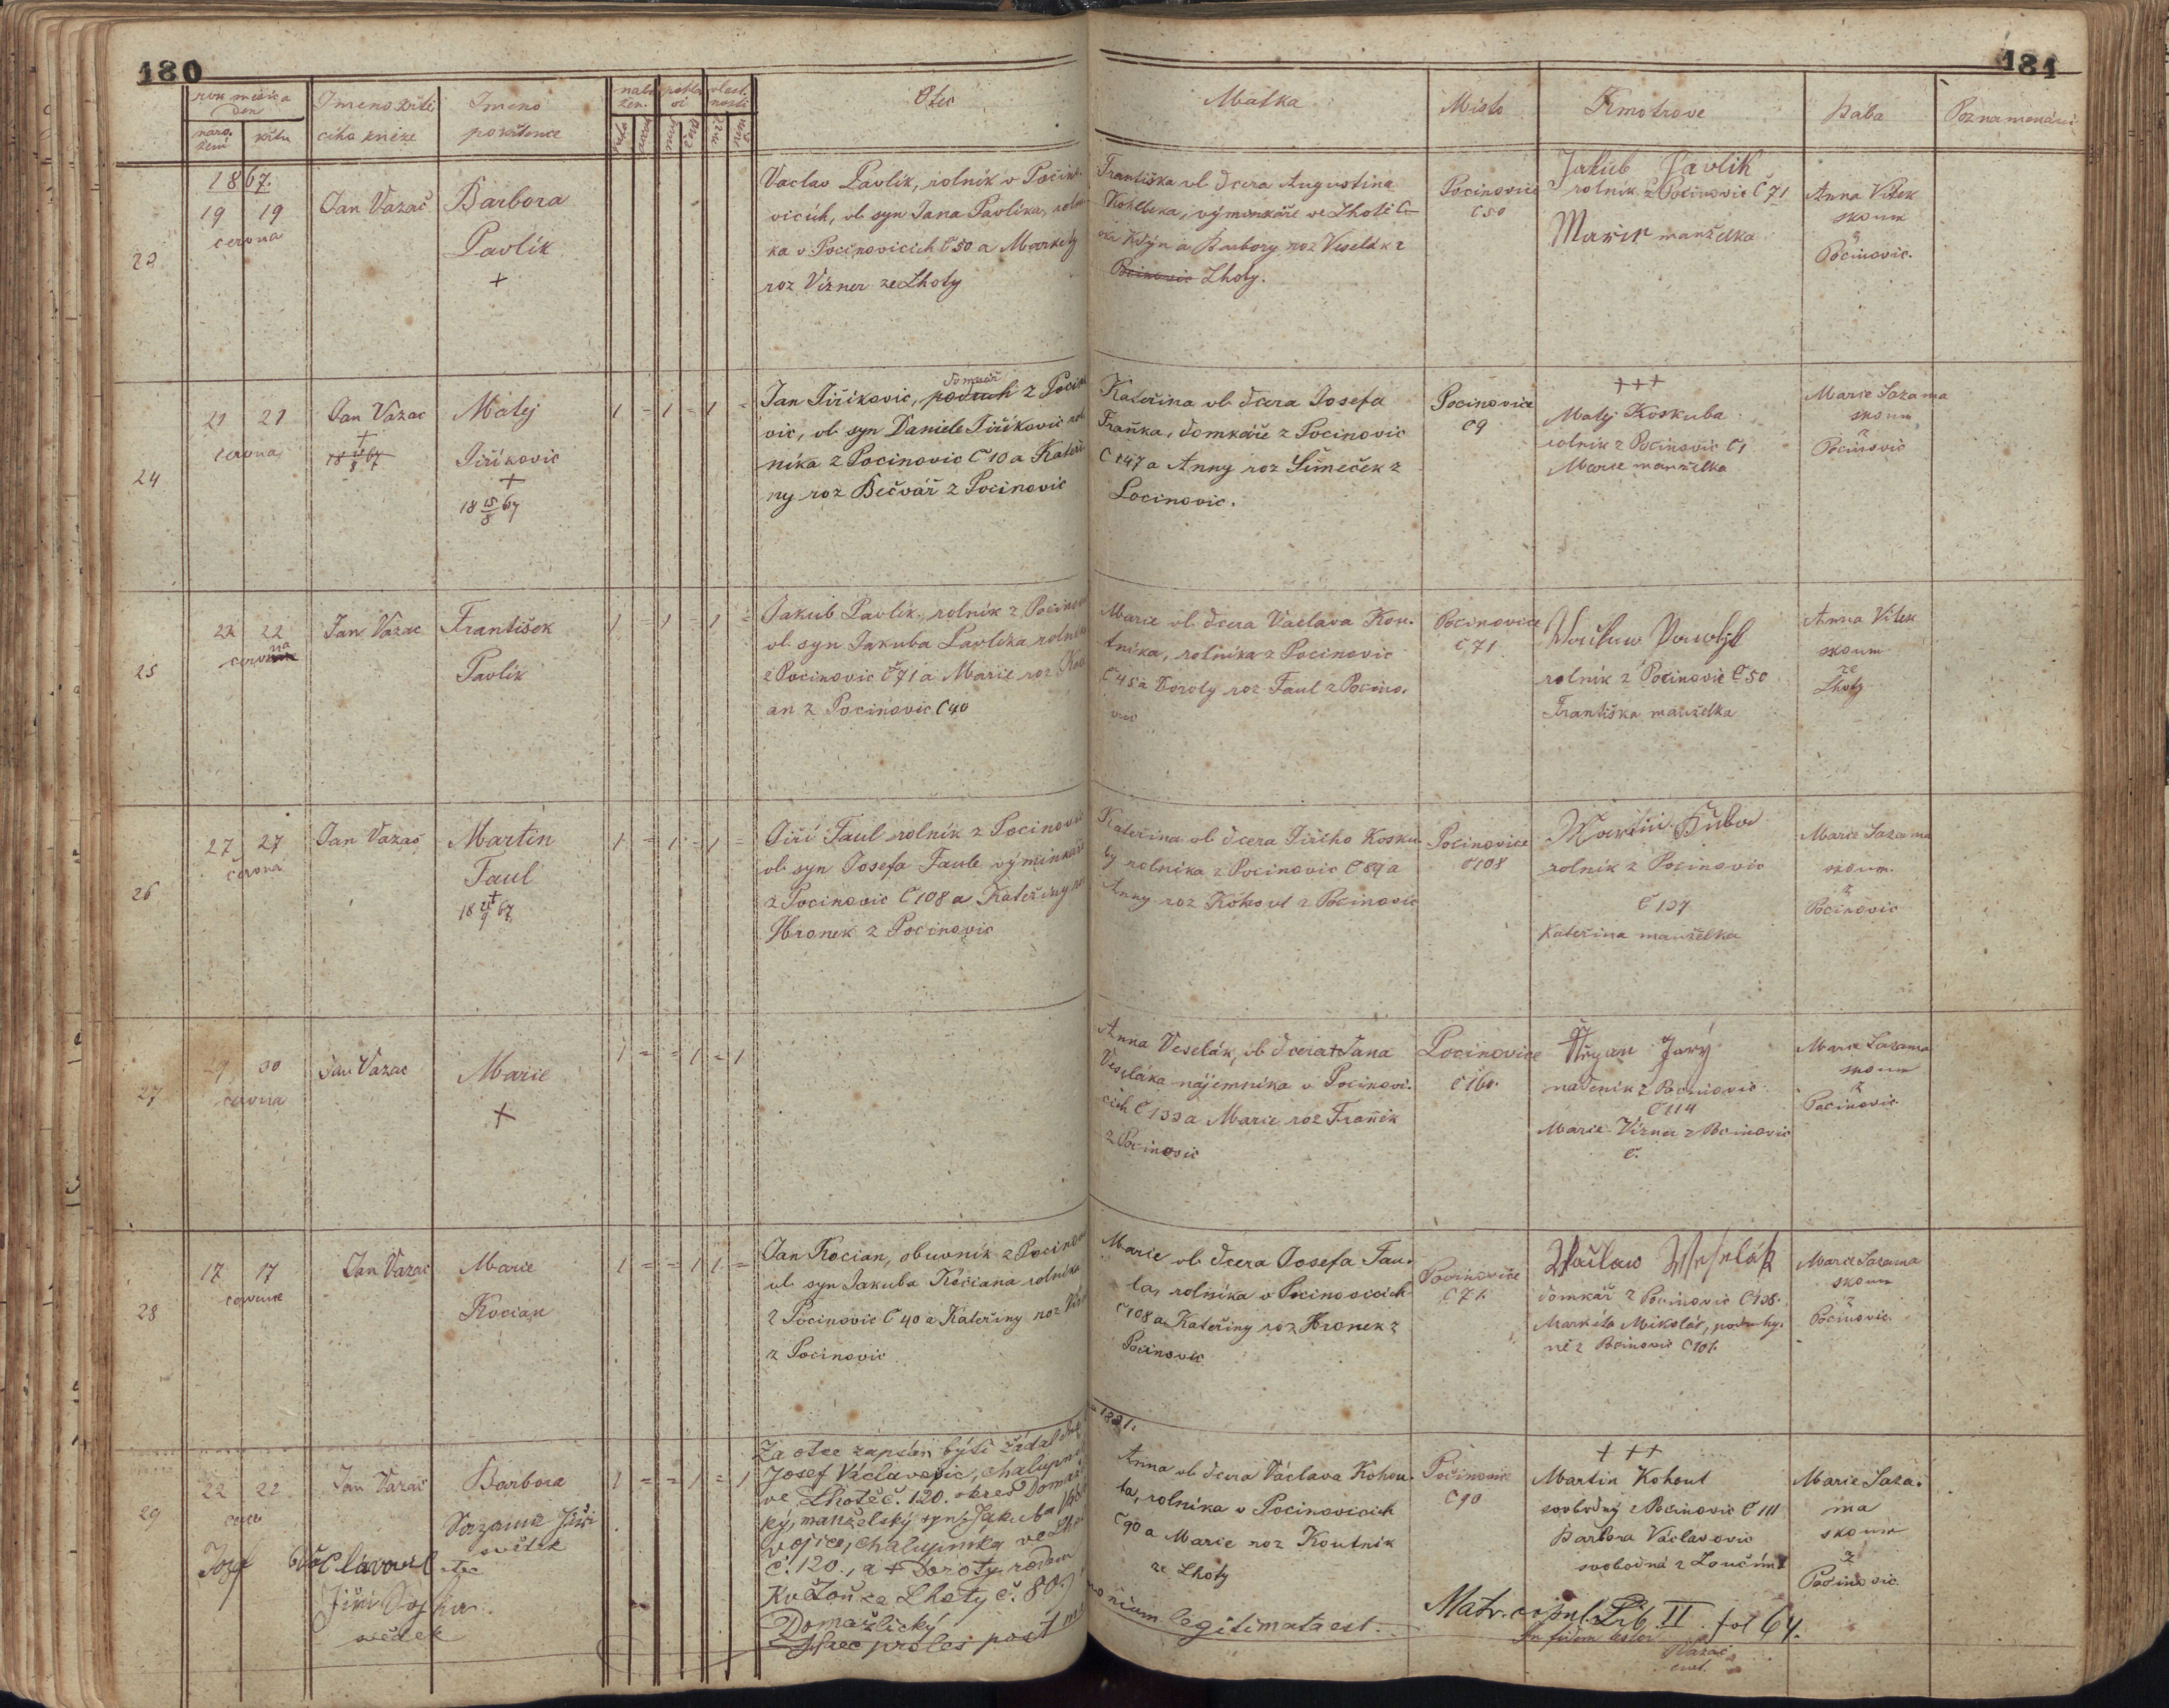 180
181
rok měsíc a den
naro. žení
křtu
Imeno křtí cího kněze
Imeno pokřtěnce
Otec
Matka
Místo
Kmotrove
Bába
Poznamenání
1867.
23
19 19
června
Jan Vazač
Barbora
Pavlík
+
Vaclav Pavlík, rolník v Pocino-
vicích, vl. syn Jana Pavlíka, rolní-
ka v Pocinovicích Č 50 a Markety
roz Vizner ze Lhoty
Františka vl. dcera Augustina
výmenkáře ve Lhotě
Kdýn a Barbory roz Veselák z
Pocinovic Lhoty.
Pocinovice
Č 50
Jakub Pavlik
rolník z Pocinovic Č 71
Marie manželka
Anna Vitek
skoum
z
Pocinovic.
24
21 21
června
Jan Vazac
+
18 15/8 67
Matej
Jiříkovic
+
18 15/8 67
1 = 1 = 1 =
domkář
Jan Jiříkovic, podruh z Pocino
vic, vl. syn Daniele Jiříkovic rol
níka z Pocinovic Č 10 a Kateři
ny roz Bečvář z Pocinovic
Kateřina vl. dcera Josefa
Fraňka, domkáře z Pocinovic
Č 147 a Anny roz Šimeček z
Pocinovic.
Pocinovice
Č 9
+++
Matej Koskuba
rolník z Pocinovic Č 1
Marie manželka
Marie Sazama
skoum
z
Pocinovic
25
22 22
června
Jan Vazac
František
Pavlík
1 = 1 = 1 =
Jakub Pavlík, rolník z Pocinovic
vl. syn Jakuba Pavlíka rolníka
z Pocinovic Č 71 a Marie roz Koci
an z Pocinovic Č 40
Marie vl. dcera Vaclava Kou-
tníka, rolníka z Pocinovic
Č 45 a Doroty roz Faul z Pocino-
vic
Pocinovice
Č 71
rolník z Pocinovic Č 50
Františka manželka
Anna Vitek
skoum
ze
Lhoty
26
27 27
června
Jan Vazač
Martin
Faul
+
18 67
1 = 1 = 1 =
Jiří Faul rolník z Pocinovic
vl. syn Josefa Faule výminkáře
z Pocinovic Č 108 a Kateřiny roz
Hronek z Pocinovic
Kateřina vl. dcera Jiřího Kosku
by rolníka z Pocinovic Č 89 a
Anny roz Kohout z Pocinovic
Pocinovice
Č 108
Martin Kuba
rolník z Pocinovic
Č 127
Kateřina manželka
Marie Sazama
skoum.
z
Pocinovic
27
29 30
června
Jan Vazac
Marie
+
1 = = 1 = 1
Anna Veselák, vl. dcera + Jana
Veseláka nájemníka v Pocinovi-
cích Č 133 a Marie roz Franik
z Pocinovic
Pocinovice
Č 160.
Štěpan Jarý
nadenik z Pocinovic
Č 114
Marie Vizner z Pocinovic
Č.
Marie Sazama
skoum
z
Pocinovic.
28
17 17
července
Jan Vazač
Marie
Kocian
1 = = 1 1 =
Jan Kocian, obuvník z Pocinovic
vl. syn Jakuba Kociana rolníka
z Pocinovic Č 40 a Kateřiny roz
z Pocinovic
Marie vl. dcera Josefa Fau-
la, rolníka v Pocinovicich
Č 108 a Kateřiny roz Hronek z
Pocinovic
Pocinovice
Č 71.
Wáclaw Weselák
domkář z Pocinovic Č 138.
Markéta Mikolář, podruhy-
ně z Pocinovic Č 101.
Marie Sazama
skoum
z
Pocinovic.
29
22 22
Jan Vazač
Barbora
Sazama Jiří
svědek
Josef Václavovic otec
Jiří
svědek
1 = = 1 = 1
Za otce zapsán býti žádal
Josef Václavovic, chalupník
ve Lhotě č. 120. okres Domaž
ký, manželský syn Jakuba Václa
vojice, chalupníka ve Lhotě
č. 120., a + Doroty rodem
ze Lhoty č. 80.
Domažlický
Haec proles post
a 1881.
Anna vl. dcera Václava Kohou-
ta, rolníka v Pocinovicich
Č 90 a Marie roz Koutník
ze Lhoty
monium legitimata est.
Pocinovic
Č 90
+++
Martin Kohout
svobodný z Pocinovic Č 111
Barbora Václavovic
svobodná z Loučimi
Marie Saza-
ma
skoum
z
Pocinovic
Matr. copul. Lib. II. fol 64.
In fidem testor
Vazač